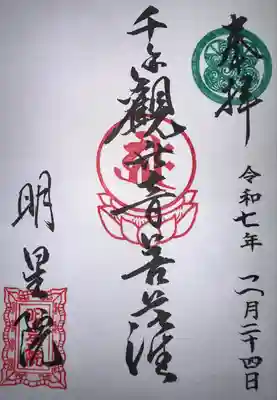 奉拝
令和七年 一月二十四日
千手観世音菩薩
明星院